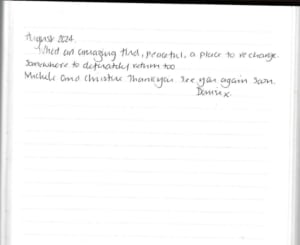 August 2024.
What an amazing find, peaceful, a place to recharge.
Somewhere to definately return too
Michele and Christine Thankyou see you again soon.
Denise x